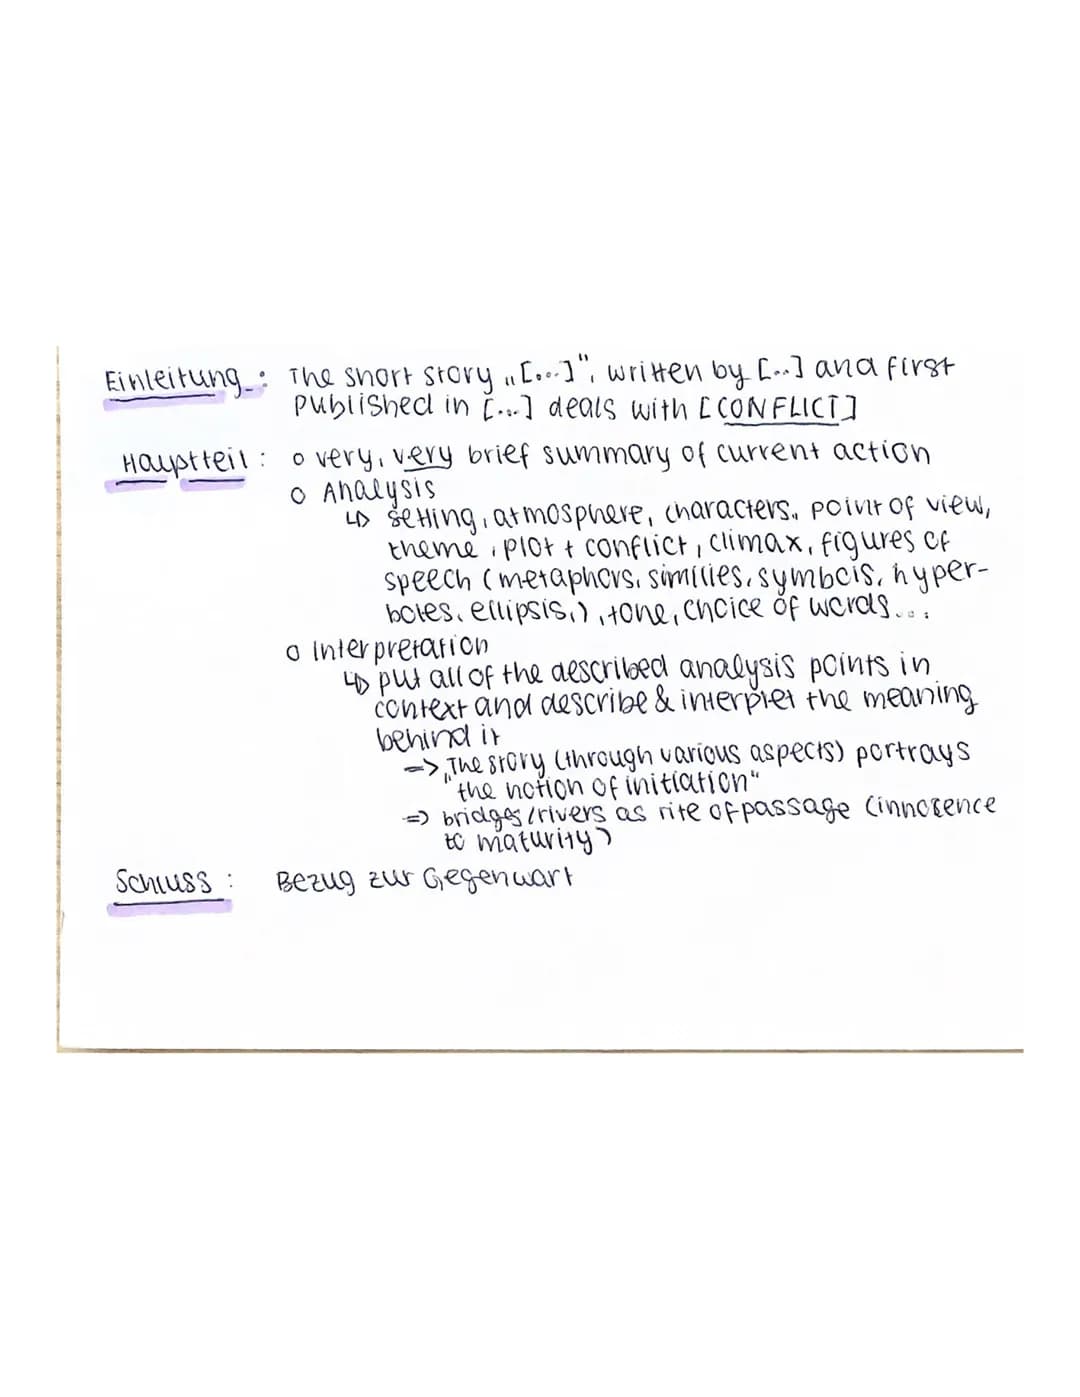 Einleitung : The short story „[...]", written by [...] and first
published in [...] deals with [CONFLICT]
Hauptteil : o very, very brief summary of current action
o Analysis
↳ setting, atmosphere, characters, point of view,
theme, plot + conflict, climax, figures of
speech (metaphors, similies, symbols, hyper-
boles, ellipsis,), tone, choice of words...
o Interpretation
↳ put all of the described analysis points in
context and describe & interpret the meaning
behind it
=> „The story (through various aspects) portrays
"the notion of initiation"
=> bridges/rivers as rite of passage (innocence
to maturity)
Schluss : Bezug zur Gegenwart